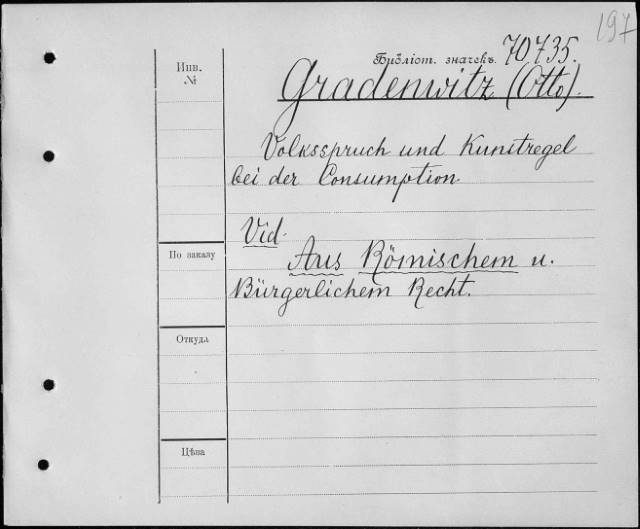 197
Библіот. значекъ 70735.
Инв.
№
Gradenwitz (Otto).
Volksspruch und Kunstregel
bei der Consumption.
Vid.
По заказу
Aus Römischem u.
Bürgerlichem Recht.
Откуда
Цѣна